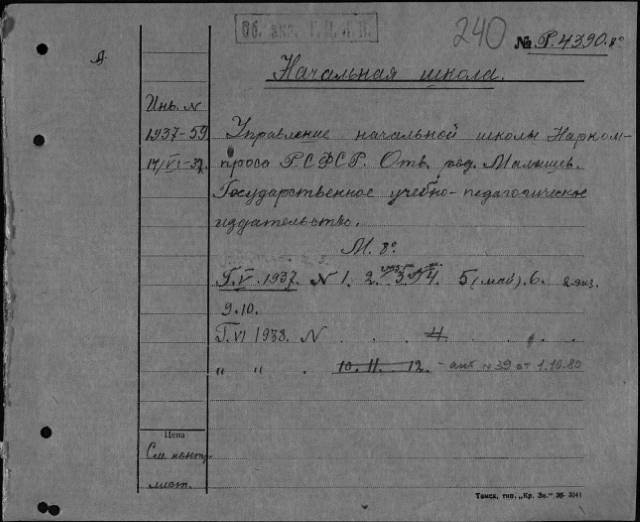 Об. акт. Г.П.Л.П.
240
№ Р.4390. 8°
Начальная школа.
Инв. N
1937-59
14/VI-37.
Управление начальной школы Нарком-
проса Р.С.Ф.С.Р. Отв. ред. Малышев.
Государственное учебно-педагогическое
издательство.
М. 8°
Г.V.1937. N 1. 2. 3. 4. 5 (май). 6. 2 экз.
9.10.
Г.VI 1938. N . . . 4 . .
" " . 10. 11. 12. - акт N 39 от 1.10.80
Цена
См. контр.
лист.
Томск, тип. „Кр. Зн.“ 36- 3041